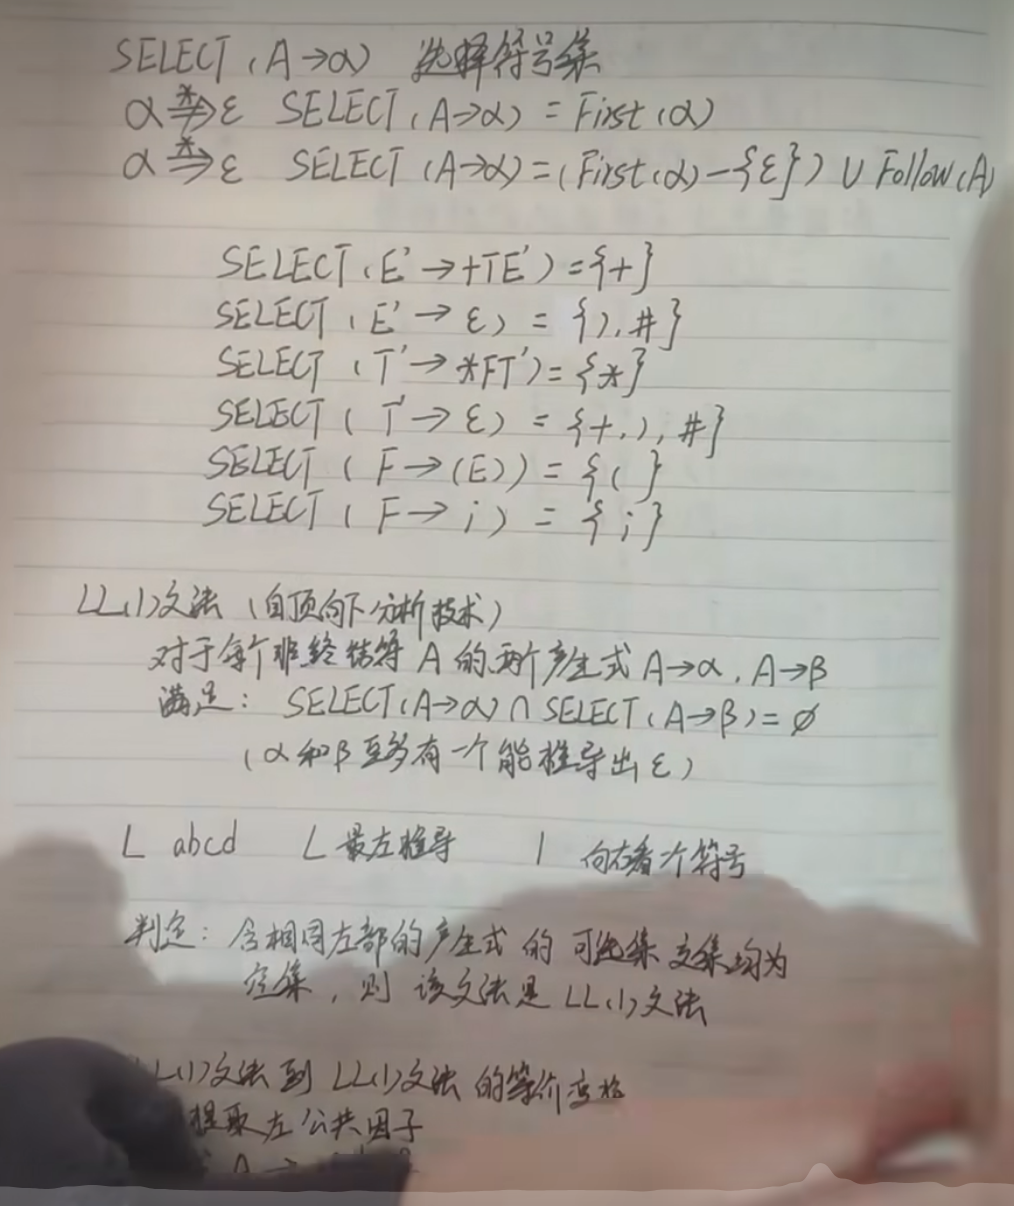 SELECT(A→α) 选择符号集
α *⇏ ε SELECT(A→α) = First(α)
α *⇒ ε SELECT(A→α)=(First(α)-{ε}) ∪ Follow(A)
SELECT(E'→+TE')={+}
SELECT(E'→ε) = {),#}
SELECT(T'→*FT')={*}
SELECT(T'→ε) = {+,),#}
SELECT(F→(E))={(}
SELECT(F→i) = {i}
LL(1)文法(自顶向下分析技术)
对于每个非终结符A的两个产生式A→α,A→β
满足: SELECT(A→α)∩SELECT(A→β)=∅
(α和β至多有一个能推导出ε)
L abcd L 最左推导 1 向右看1个符号
判定:含相同左部的产生式的可选集交集均为
空集,则该文法是LL(1)文法
L(1)文法到LL(1)文法的等价变换
提取左公共因子
A→